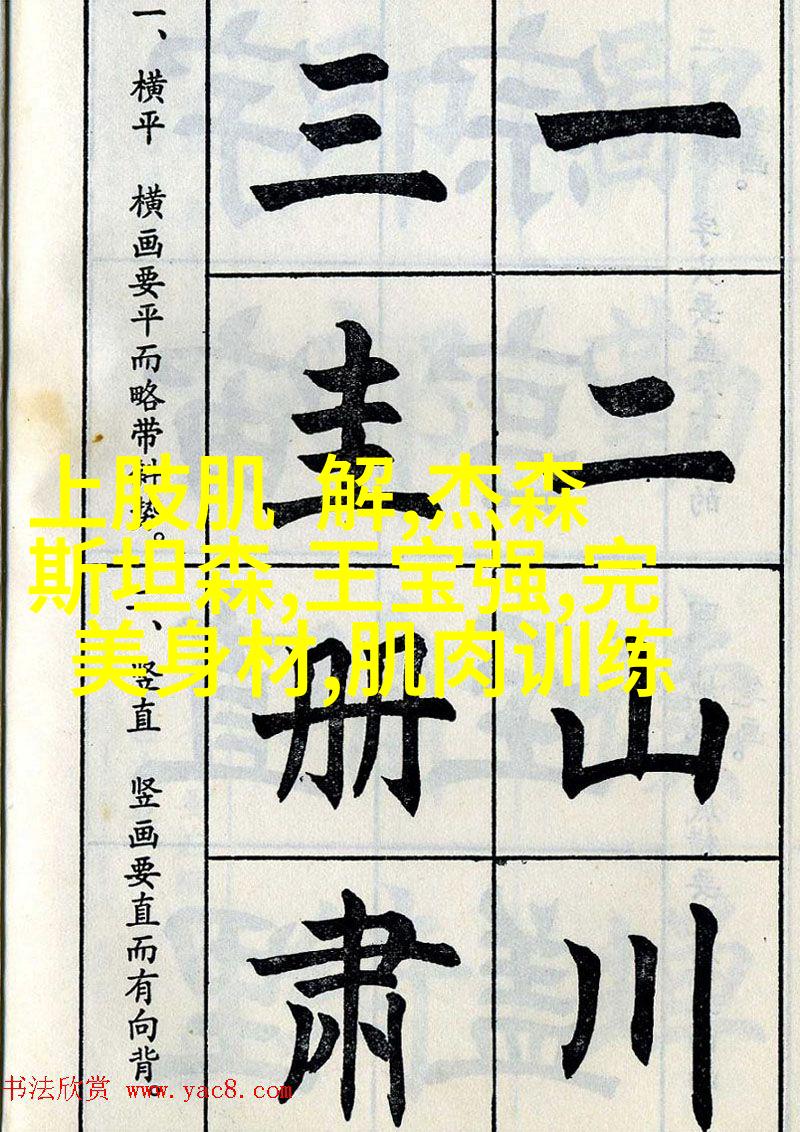 一
二
山
川
三
圭
册
肃
一、横平 横画要平而略带斜势。
二、竖直 竖画要直而有向背。
上肢肌 解,杰森
斯坦森,王宝强,完
美身材,肌肉训练
书法欣赏 www.yac8.com